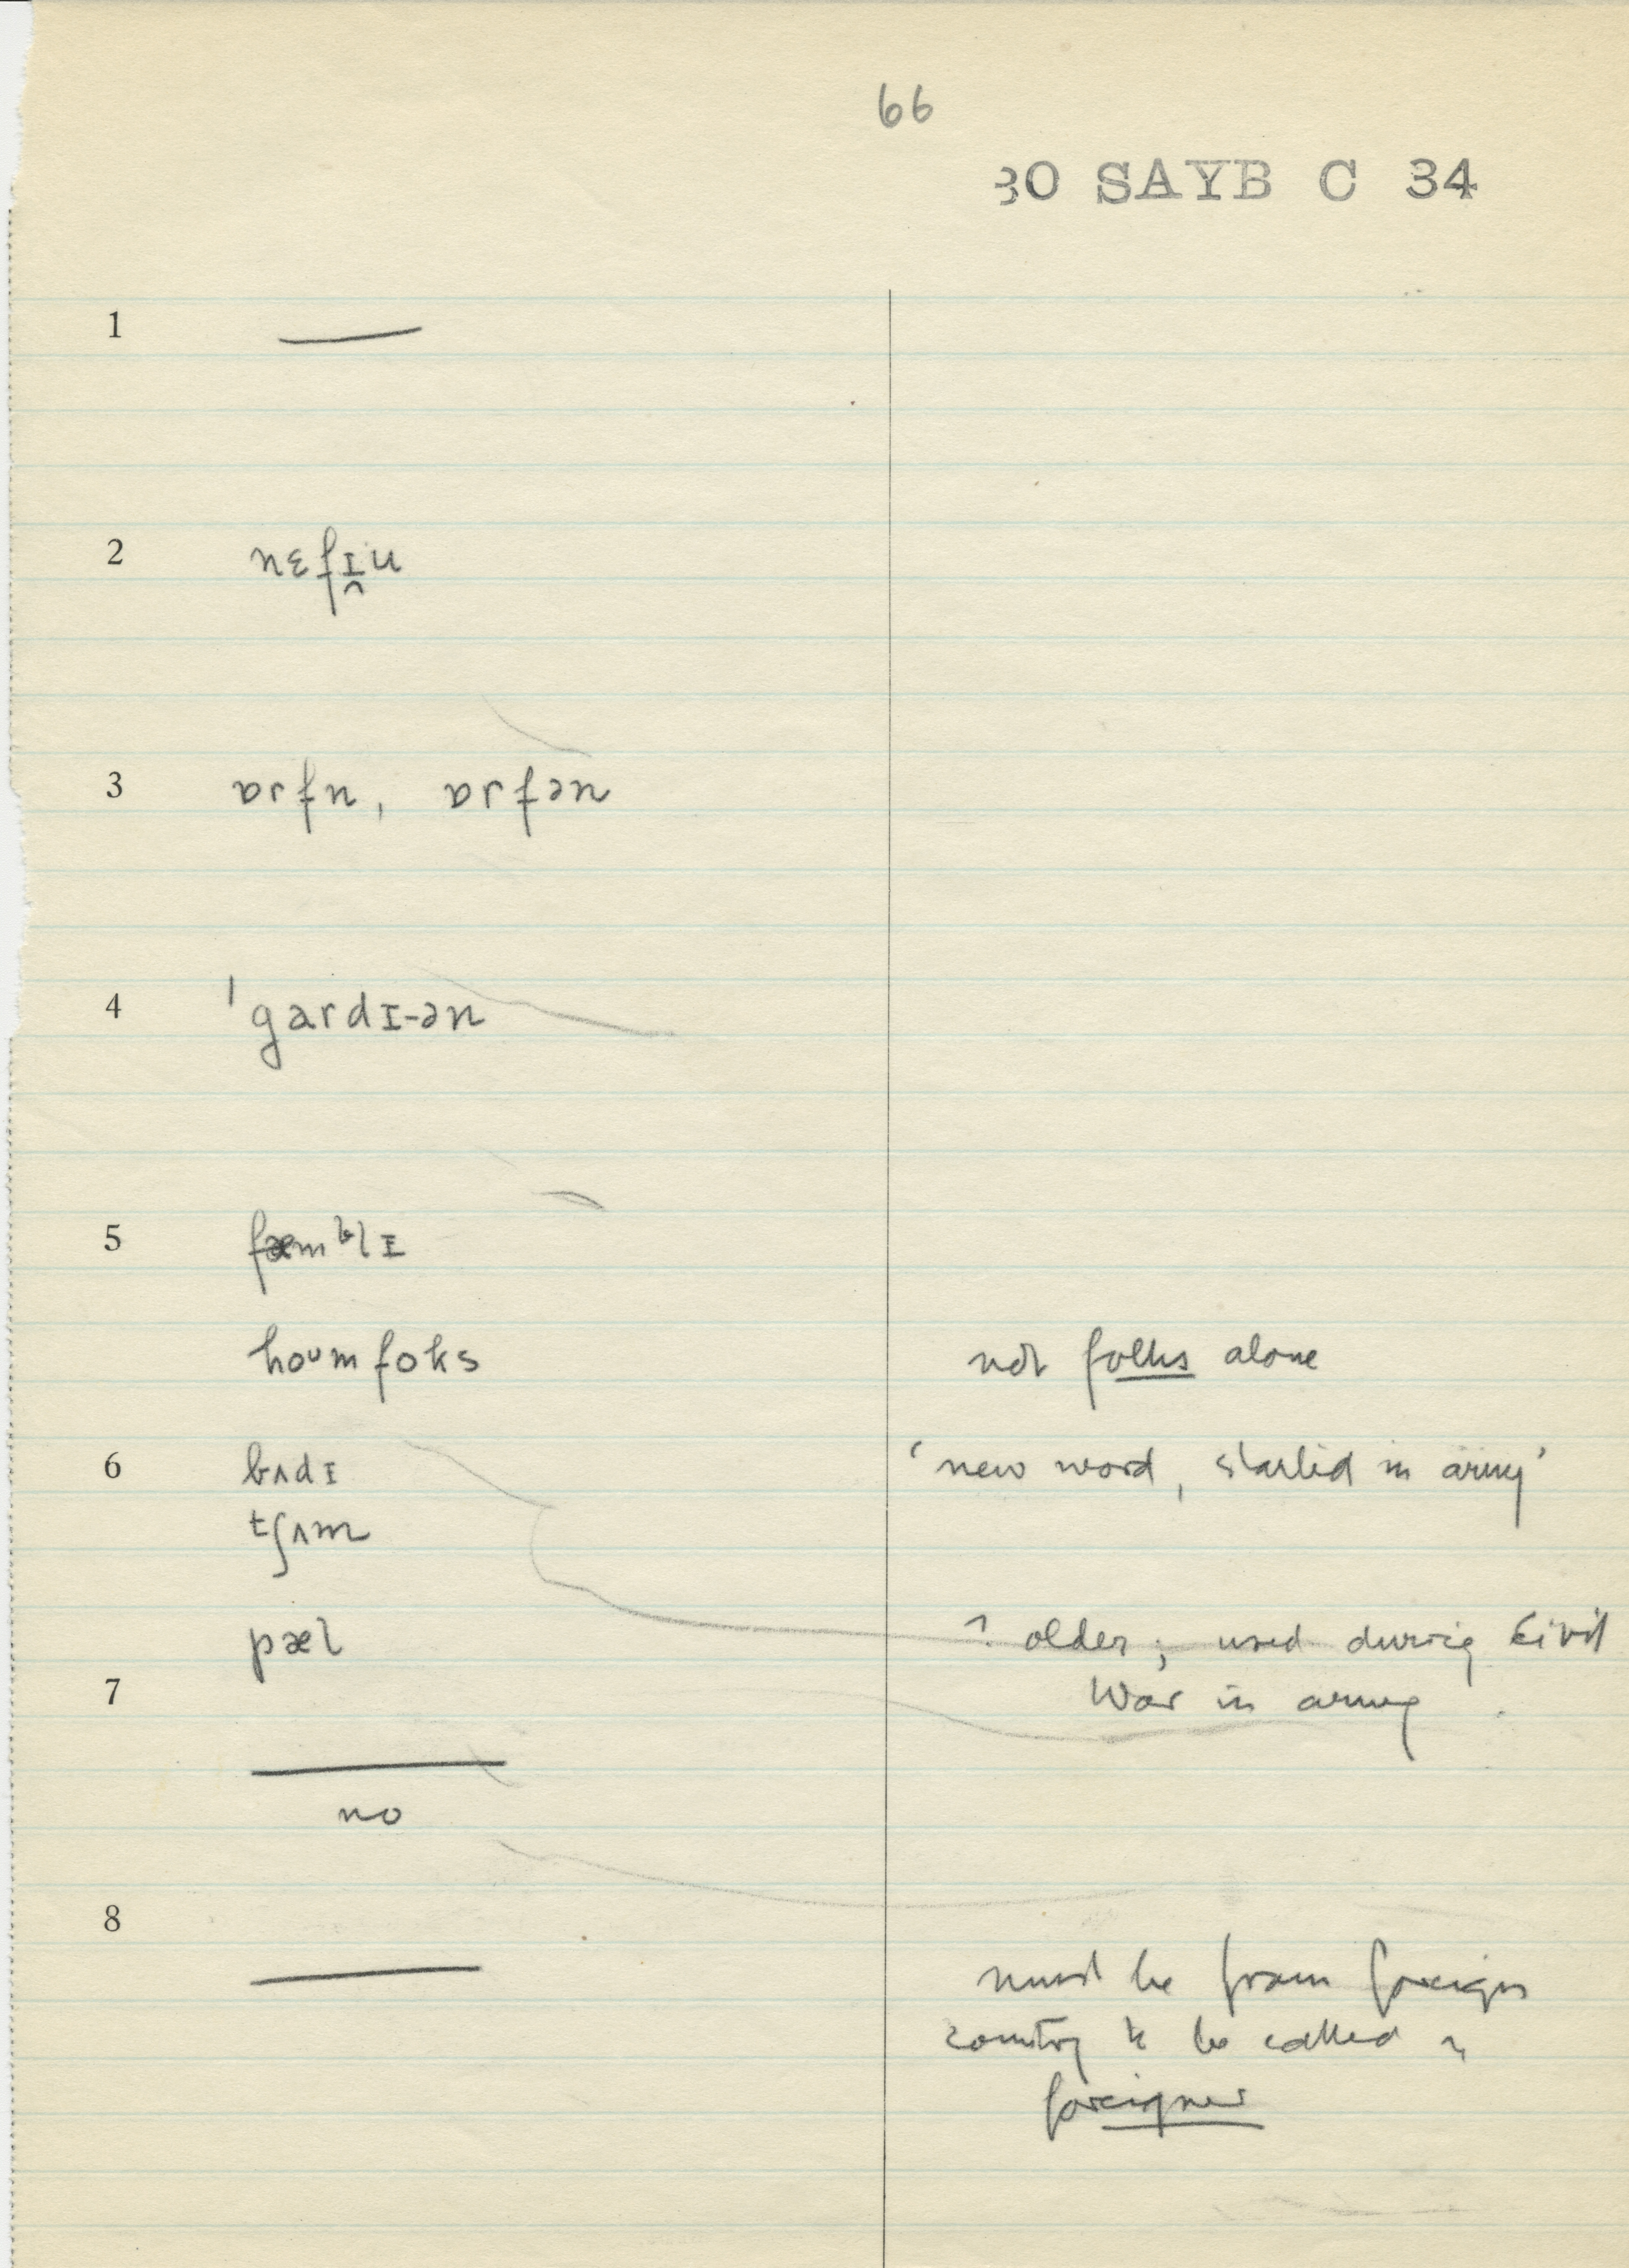 66
30 SAYB C 34
1 —
2 nɛfɪ̯u
3 ɒrfn, ɒrfən
4 ˈgardɪ-ən
5 fæmᵇlɪ
hoᴜm foks not folks alone
6 bʌdɪ 'new word, started in army'
tʃʌm
pæl ? older; used during Civil
7 War in army
—
no
8
— must be from foreign
country to be called a
foreigner